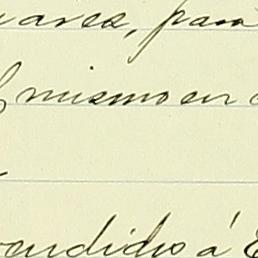 uares, para
l mismo en
endidos á E